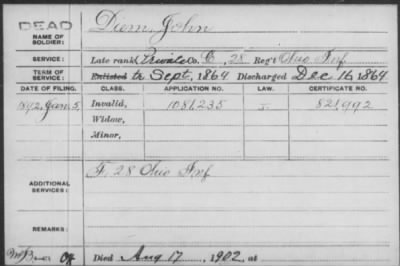 DEAD
NAME OF SOLDIER: Diem, John
SERVICE: Late rank, Private Co. G, 28 Reg't Ohio Inf
TERM OF SERVICE: Enlisted to Sept, 1864 Discharged Dec 16, 1864
DATE OF FILING. CLASS. APPLICATION NO. LAW. CERTIFICATE NO.
1892, Jan. 5, Invalid, 1081,235 821,992
Widow,
Minor,
ADDITIONAL SERVICES: F. 28 Ohio Inf
REMARKS:
Died Aug 17, 1902, at